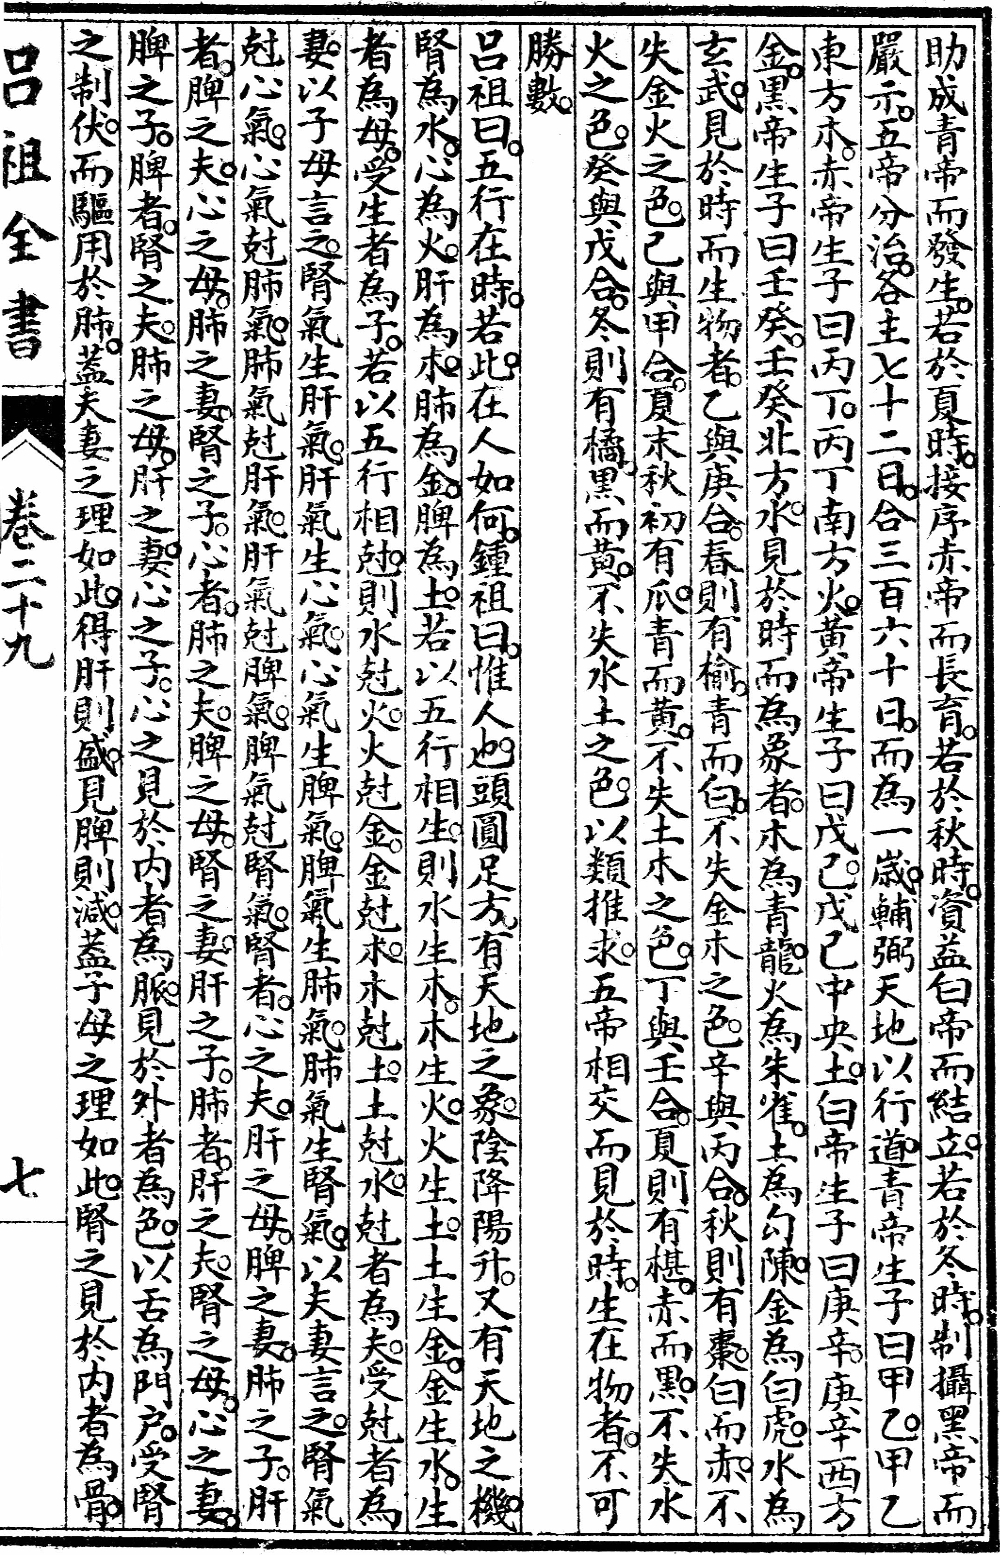 助成青帝而發生。若於夏時。接序赤帝而長育。若於秋時。資益白帝而結立。若於冬時。制攝黑帝而
嚴示。五帝分治。各主七十二日。合三百六十日。而為一歲。輔弼天地以行道。青帝生子曰甲乙。甲乙
東方木。赤帝生子曰丙丁。丙丁南方火。黃帝生子曰戊己。戊己中央土。白帝生子曰庚辛。庚辛西方
金。黑帝生子曰壬癸。壬癸北方水。見於時而為象者。木為青龍。火為朱雀。土為勾陳。金為白虎。水為
玄武。見於時而生物者。乙與庚合。春則有榆。青而白。不失金木之色。辛與丙合。秋則有棗。白而赤。不
失金火之色。己與甲合。夏末秋初有瓜。青而黃。不失土木之色。丁與壬合。夏則有椹。赤而黑。不失水
火之色。癸與戊合。冬則有橘。黑而黃。不失水土之色。以類推求。五帝相交而見於時。生在物者。不可
勝數。
呂祖曰。五行在時。若此。在人如何。鍾祖曰。惟人也。頭圓足方。有天地之象。陰降陽升。又有天地之機。
腎為水。心為火。肝為木。肺為金。脾為土。若以五行相生。則水生木。木生火。火生土。土生金。金生水。生
者為母。受生者為子。若以五行相尅。則水尅火。火尅金。金尅木。木尅土。土尅水。尅者為夫。受尅者為
妻。以子母言之。腎氣生肝氣。肝氣生心氣。心氣生脾氣。脾氣生肺氣。肺氣生腎氣。以夫妻言之。腎氣
尅心氣。心氣尅肺氣。肺氣尅肝氣。肝氣尅脾氣。脾氣尅腎氣。腎者。心之夫。肝之母。脾之妻。肺之子。肝
者。脾之夫。心之母。肺之妻。腎之子。心者。肺之夫。脾之母。腎之妻。肝之子。肺者。肝之夫。腎之母。心之妻。
脾之子。脾者。腎之夫。肺之母。肝之妻。心之子。心之見於內者為脈。見於外者為色。以舌為門戶。受腎
之制伏。而驅用於肺。蓋夫妻之理如此。得肝則盛。見脾則減。蓋子母之理如此。腎之見於內者為骨。
呂祖全書
卷二十九
七